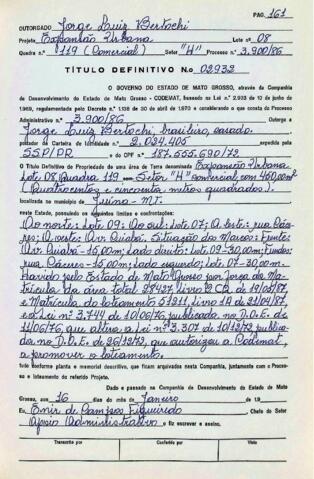 PAG. 161
OUTORGADO Jorge Luiz Bertochi
Projeto Expansão Urbana Lote nº 08
Quadra n.º 119 (Comercial) Setor "H" Processo n.º 3.900/86
TÍTULO DEFINITIVO N.o 02932
O GOVERNO DO ESTADO DE MATO GROSSO, através da Companhia
de Desenvolvimento do Estado de Mato Grosso - CODEMAT, baseado na Lei n.º 2.933 de 10 de junho
de 1969, regulamentado pelo Decreto n.º 1.138 de 30 de abril de 1970 e considerando o que consta do Processo
Administrativo n.º 3.900/86 Outorga a
Jorge Luiz Bertochi, brasileiro, casado.
portador da Carteira de Identidade n.º 2.024.405 expedida pela
SSP/PR e do CPF n.º 187.555.690/72
o Título Definitivo de Propriedade de uma área de Terra denominada Expansão Urbana
Lote 08 Quadra 119 com Setor "H" comercial com 450,00m²
(Quatrocentos e cinquenta metros quadrados).
localizada no município de Juina - MT.
neste Estado, possuindo os seguintes limites e confrontações:
Ao norte: Lote. 09; Ao sul: Lote. 07; A leste: rua Cáce-
res; A oeste: Av. Cuiabá. Situação dos Marcos: Frente:
Av. Cuiabá - 15,00m; Lado direito: Lote. 09 - 30,00m; Fundos:
rua Cáceres - 15,00m; Lado esquerdo: Lote. 07 - 30,00m.
Havido pelo Estado de Mato Grosso por força da Ma-
trícula da área total 28427, livro 2 CB, de 19/02/87,
e Matrícula do loteamento 51211, livro 1A de 21/04/87,
e a Lei nº 3.744 de 10/06/76, publicada no D.O.E. de
11/06/76, que altera a Lei nº 3.307 de 10/12/72 publica-
da no D.O.E. de 26/12/72, que autorizou a Codemat,
a promover o loteamento.
tudo conforme planta e memorial descritivo, que ficam arquivados nesta Companhia, juntamente com o Proces-
so e loteamento do referido Projeto.
Dado e passado na Companhia de Desenvolvimento do Estado de Mato
Grosso, aos 16 dias do mês de Janeiro de 1.9
Eu, Enir de Campos Figueiredo Chefe do Setor
Apoio Administrativo o fiz escrever e assino.
Transcrito por Conferido por Visto